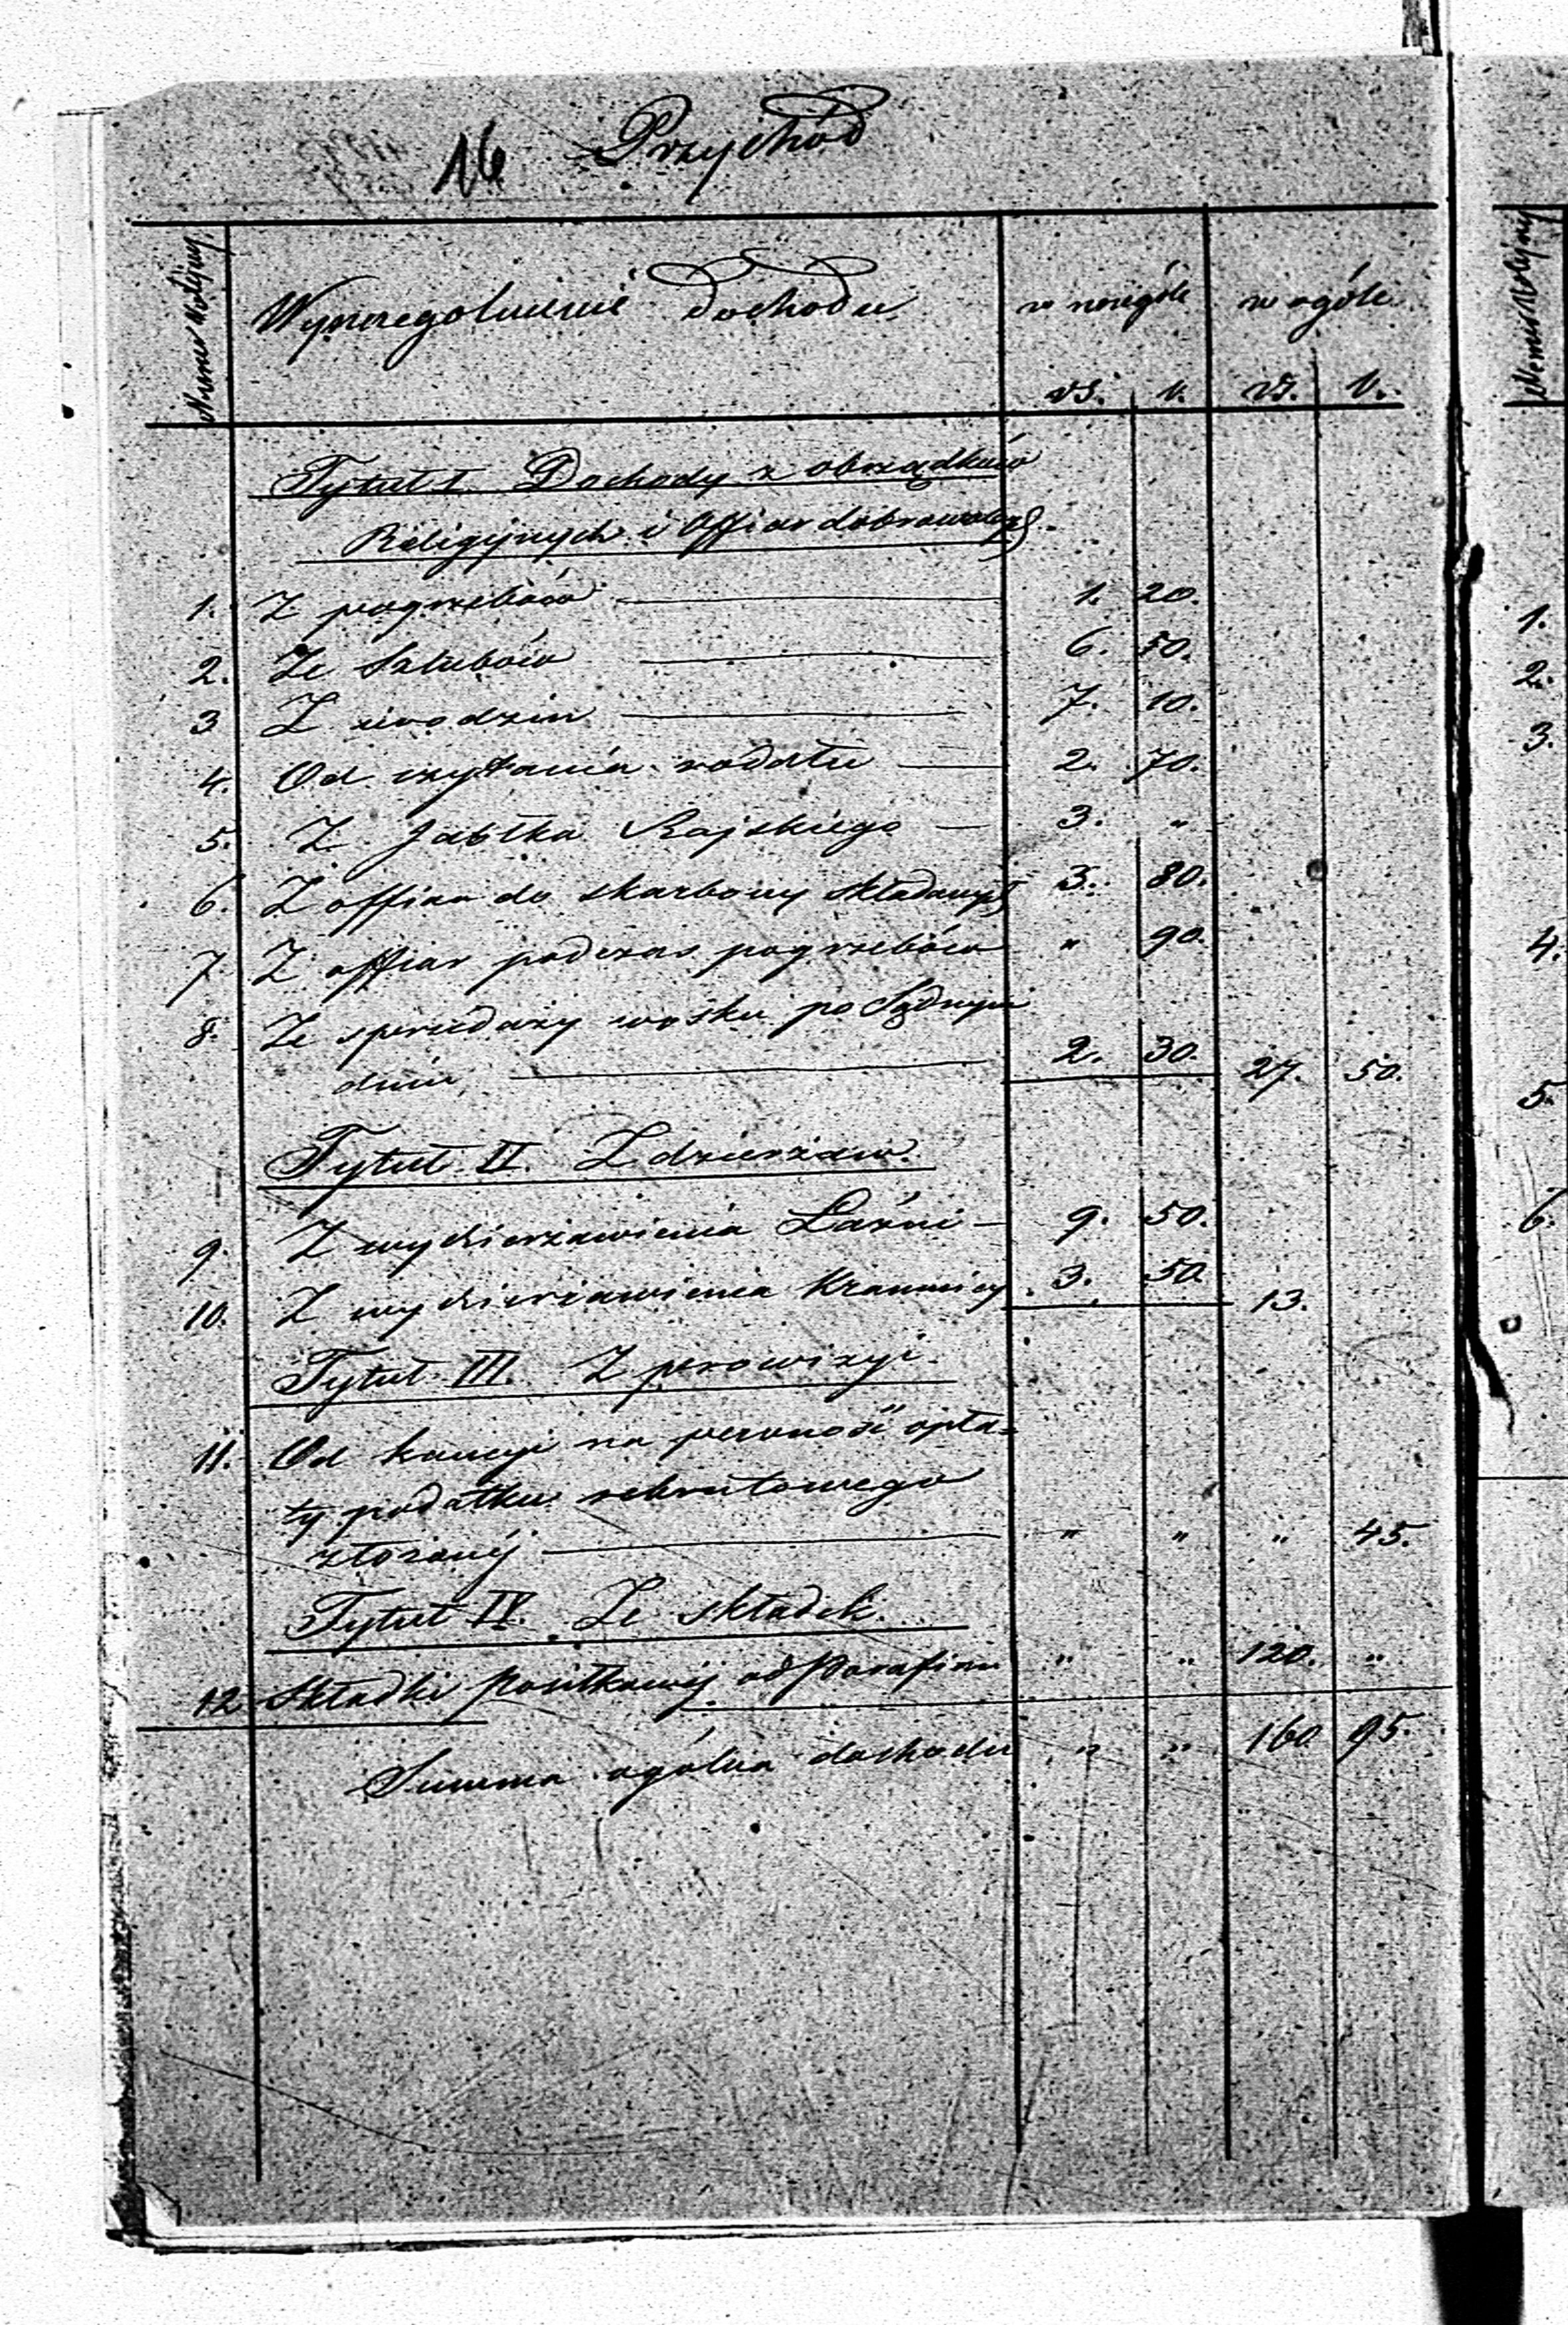 16 Przychód
Numer kolejny Wyszczególnienie dochodu w szczególe w ogóle
rs. k. rs. k.
Tytuł I. Dochody z obrządków
Religijnych i Offiar dobrowolnych.
1. Z pogrzebów 1. 20.
2. Ze Szlubów 6. 50.
3 Z urodzin 7. 10.
4. Od czytania rodału 2. 70.
5. Z Jabłka Rajskiego 3. "
6. Z offiar do skarbony składanych 3. 80.
7. Z offiar podczas pogrzebów " 90.
8. Ze sprzedaży wosku po Sądnym
dniu, 2. 30. 27. 50.
Tytuł II. Z dzierżaw.
9. Z wydzierżawienia Łaźni 9. 50.
10. Z wydzierżawienia Kramnicy 3. 50 13.
Tytuł III. Z prowizyi.
11. Od kaucyi na pewność opła=
ty podatku rekrutowego
złożonéj " " " 45.
Tytuł IV. Ze składek.
12 Składki posiłkowéj od Parafian " " 120. "
Summa ogólna dochodu " " 160 95.
Numer kolejny
1.
2.
3.
4.
5.
6.